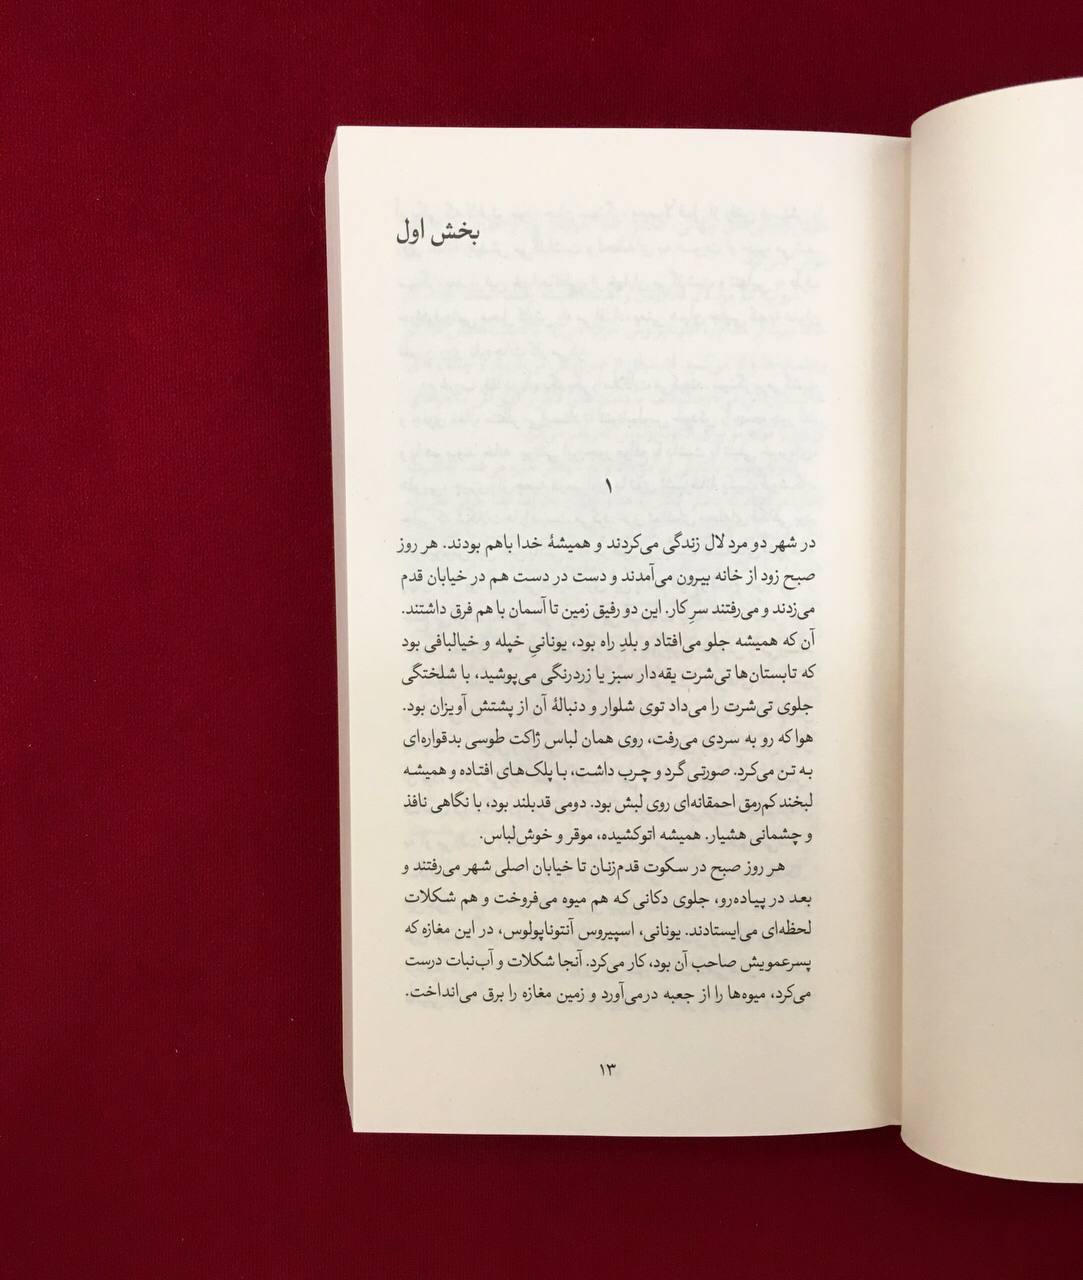 بخش اول
۱
در شهر دو مرد لال زندگی می‌کردند و همیشهٔ خدا باهم بودند. هر روز
صبح زود از خانه بیرون می‌آمدند و دست در دست هم در خیابان قدم
می‌زدند و می‌رفتند سرِ کار. این دو رفیق زمین تا آسمان با هم فرق داشتند.
آن که همیشه جلو می‌افتاد و بلدِ راه بود، یونانیِ خپله و خیالبافی بود
که تابستان‌ها تی‌شرت یقه‌دار سبز یا زردرنگی می‌پوشید، با شلختگی
جلوی تی‌شرت را می‌داد توی شلوار و دنبالهٔ آن از پشتش آویزان بود.
هوا که رو به سردی می‌رفت، روی همان لباس ژاکت طوسی بدقواره‌ای
به تن می‌کرد. صورتی گرد و چرب داشت، با پلک‌های افتاده و همیشه
لبخند کم‌رمق احمقانه‌ای روی لبش بود. دومی قدبلند بود، با نگاهی نافذ
و چشمانی هشیار. همیشه اتوکشیده، موقر و خوش‌لباس.
هر روز صبح در سکوت قدم‌زنان تا خیابان اصلی شهر می‌رفتند و
بعد در پیاده‌رو، جلوی دکانی که هم میوه می‌فروخت و هم شکلات
لحظه‌ای می‌ایستادند. یونانی، اسپیروس آنتوناپولوس، در این مغازه که
پسرعمویش صاحب آن بود، کار می‌کرد. آنجا شکلات و آب‌نبات درست
می‌کرد، میوه‌ها را از جعبه درمی‌آورد و زمین مغازه را برق می‌انداخت.
۱۳